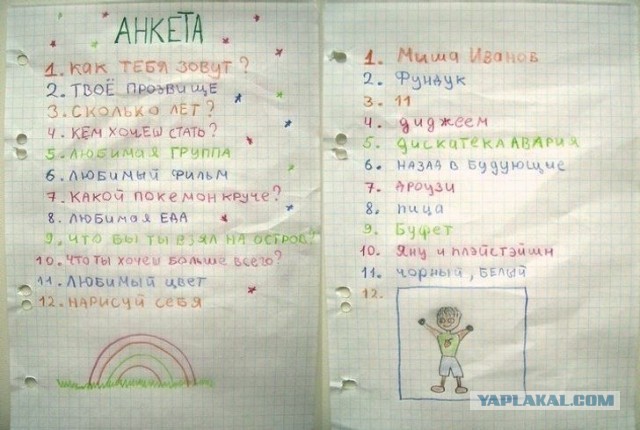 АНКЕТА
1. КАК ТЕБЯ ЗОВУТ?
2. ТВОЁ ПРОЗВИЩЕ
3. СКОЛЬКО ЛЕТ?
4. КЕМ ХОЧЕШ СТАТЬ?
5. ЛЮБИМАЯ ГРУППА
6. ЛЮБИМЫЙ ФИЛЬМ
7. КАКОЙ ПОКЕМОН КРУЧЕ?
8. ЛЮБИМАЯ ЕДА
9. ЧТО БЫ ТЫ ВЗЯЛ НА ОСТРОВ?
10. ЧТО ТЫ ХОЧЕШ БОЛЬШЕ ВСЕГО?
11. ЛЮБИМЫЙ ЦВЕТ
12. НАРИСУЙ СЕБЯ
1. Миша Иванов
2. Фундук
3. 11
4. диджеем
5. ДИСКАТЕКА АВАРИЯ
6. НАЗАД В БУДУЮЩИЕ
7. ДРОУЗИ
8. пица
9. Буфет
10. Яну и плэйстэйшн
11. чорный, БЕЛЫЙ
12.
YAPLAKAL.COM